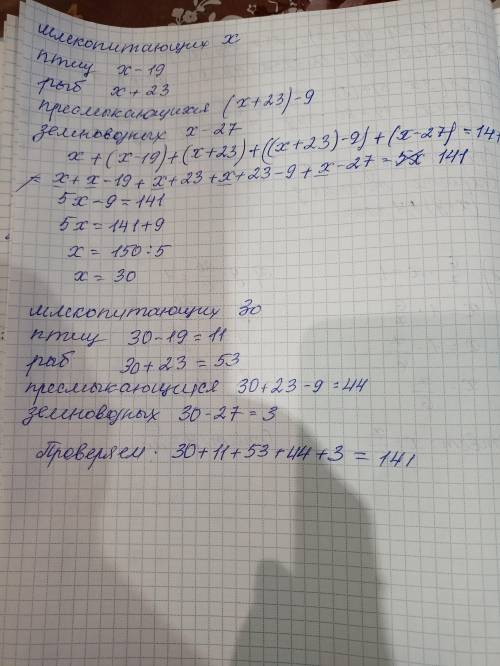 млекопитающих x
птиц x-19
рыб x+23
пресмыкающихся (x+23)-9
земноводных x-27
x+(x-19)+(x+23)+((x+23)-9)+(x-27)=141
x+x-19+x+23+x+23-9+x-27=5x 141
5x-9=141
5x=141+9
x=150:5
x=30
млекопитающих 30
птиц 30-19=11
рыб 30+23=53
пресмыкающихся 30+23-9=44
земноводных 30-27=3
Проверяем. 30+11+53+44+3=141